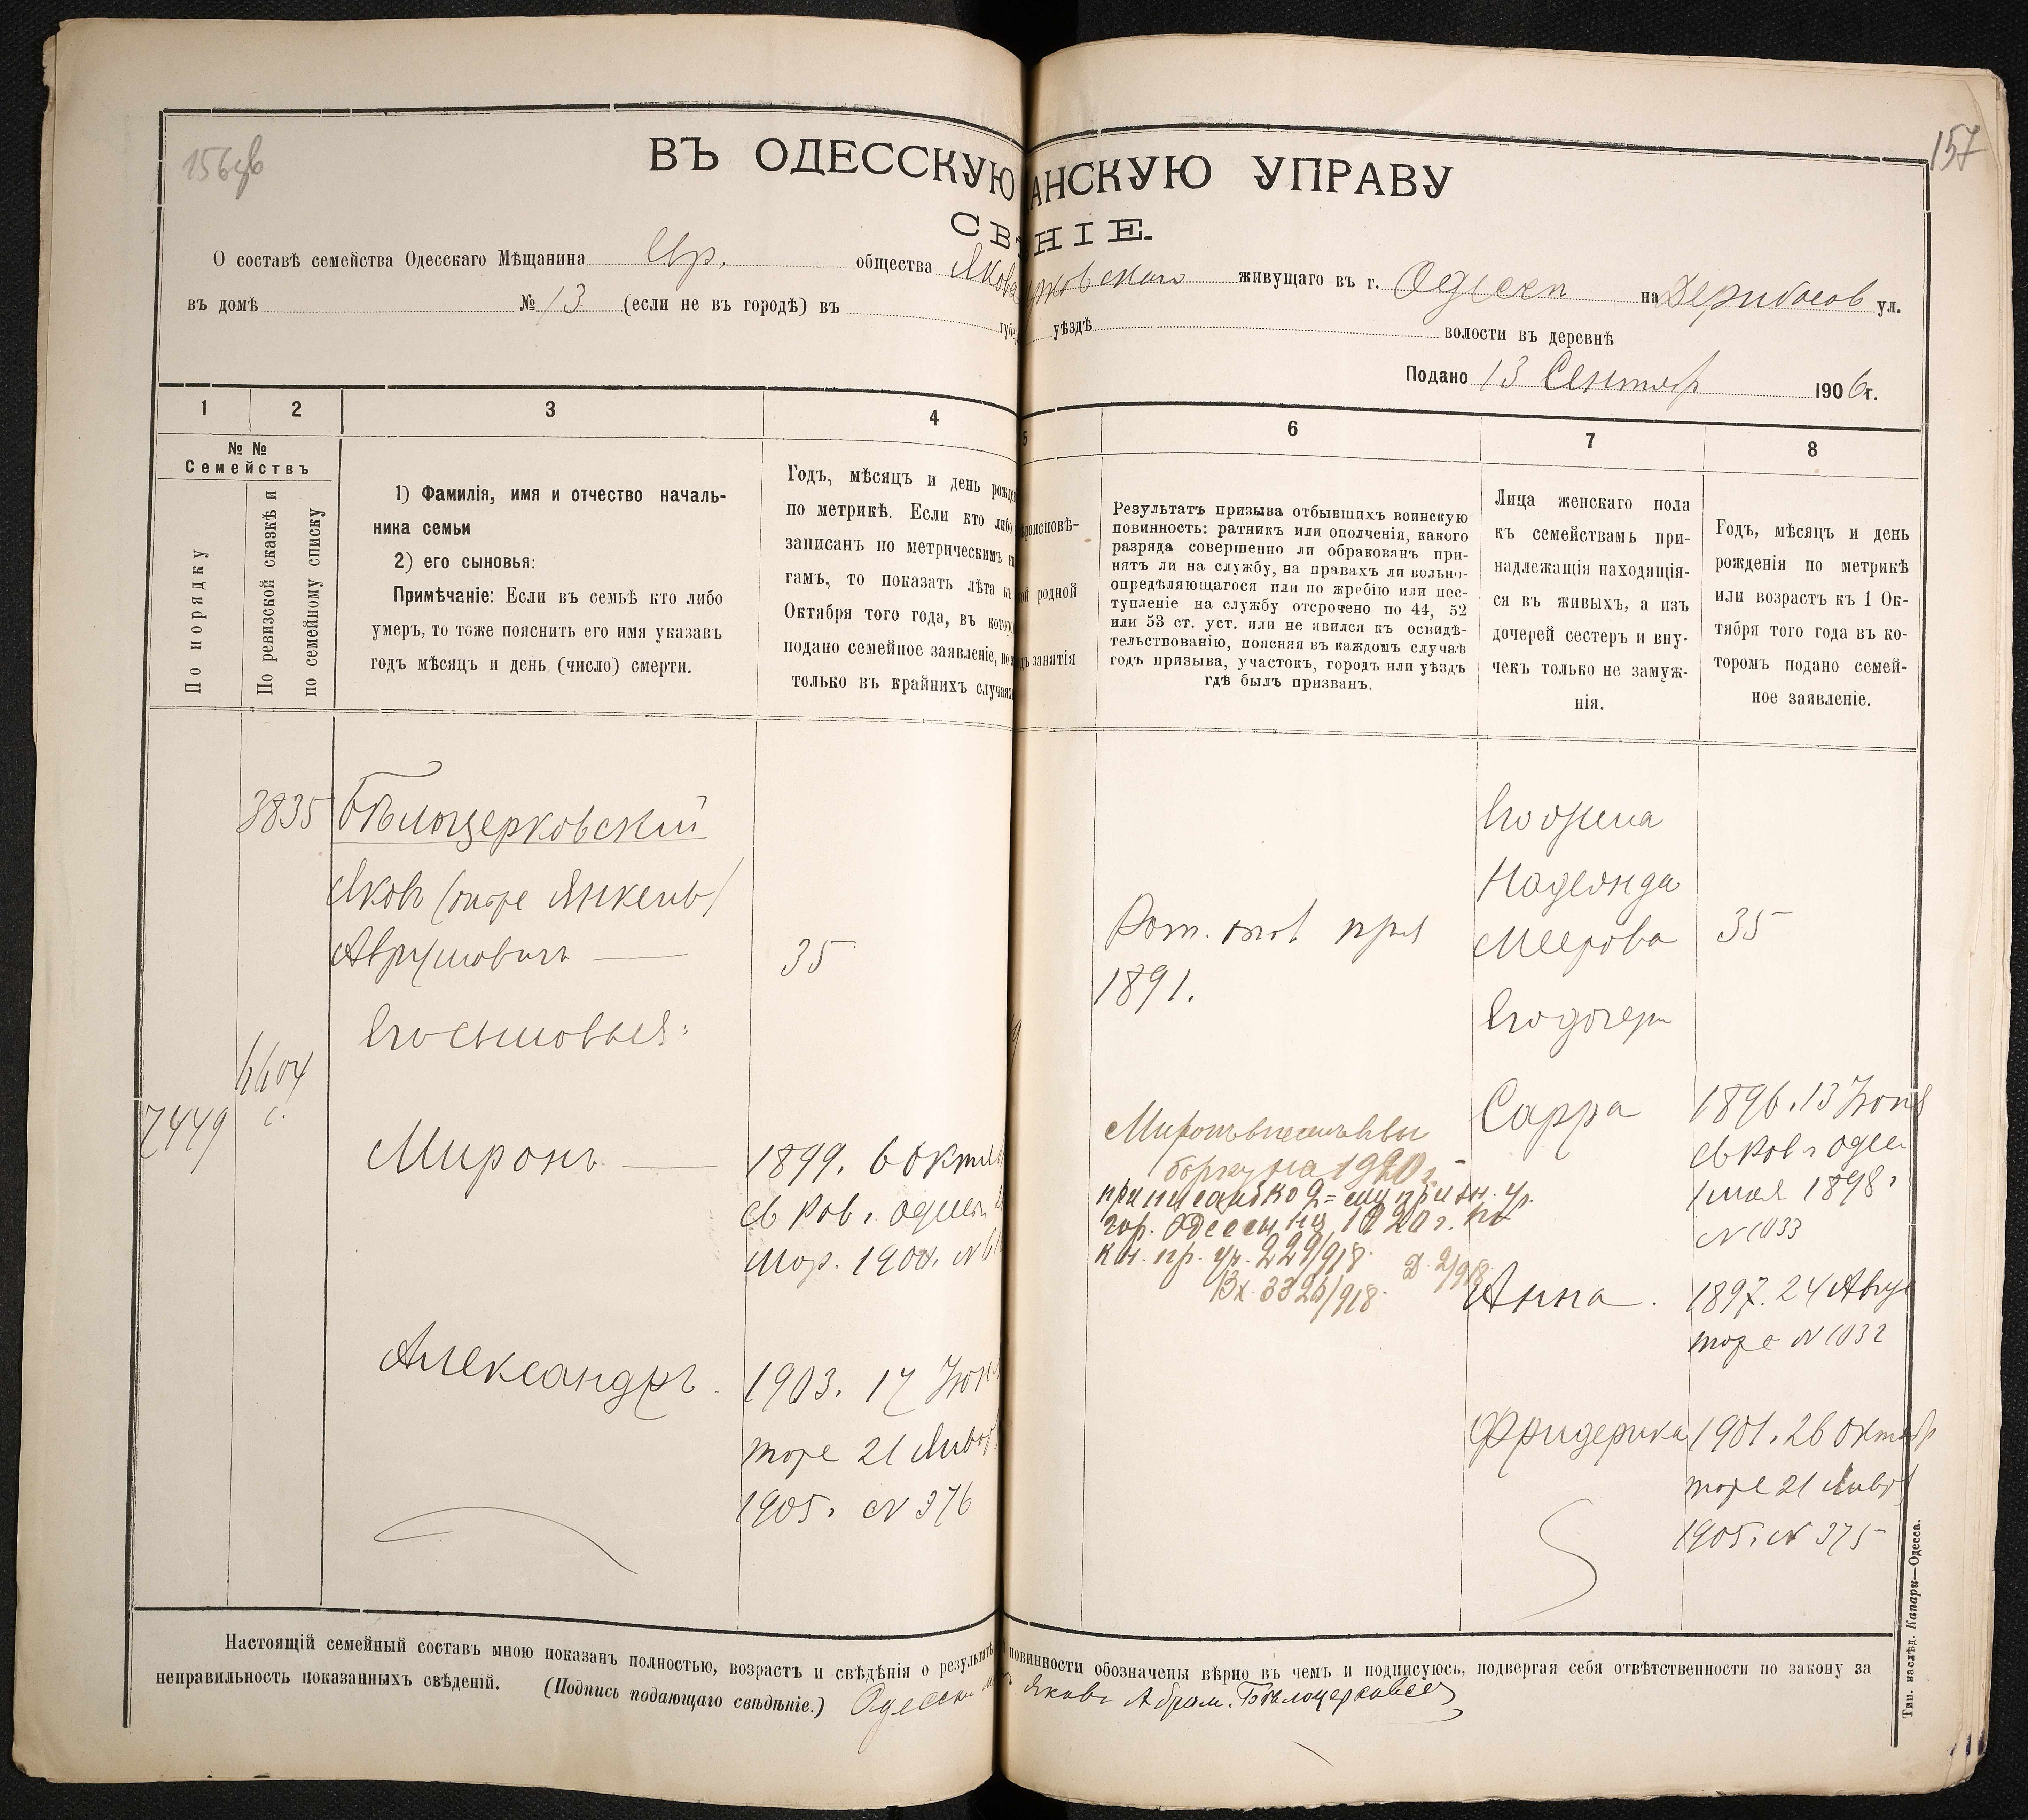 156 об
157
ВЪ ОДЕССКУЮ АНСКУЮ УПРАВУ
СВ НІЕ.
О составѣ семейства Одесскаго Мѣщанина Евр. общества Якова рковскаго живущаго въ г. Одессѣ на Дерибасов ул.
въ домѣ № 13 (если не въ городѣ) въ губе уѣздѣ волости въ деревнѣ
Подано 13 Сентябр 1906 г.
1 2 3 4 5 6 7 8
№ №
Семействъ
По порядку
По ревизской сказкѣ и
по семейному списку
1) Фамилія, имя и отчество началь-
ника семьи
2) его сыновья:
Примѣчаніе: Если въ семьѣ кто либо
умеръ, то тоже пояснить его имя указавъ
годъ мѣсяцъ и день (число) смерти.
Годъ, мѣсяцъ и день рожде
по метрикѣ. Если кто либо
записанъ по метрическимъ кн
гамъ, то показать лѣта къ
Октября того года, въ которо
подано семейное заявленіе, но э
только въ крайнихъ случаяхъ
роисповѣ-
ой родной
дъ занятія
Результатъ призыва отбывшихъ воинскую
повинность: ратникъ или ополченія, какого
разряда совершенно ли обракованъ при-
нятъ ли на службу, на правахъ ли вольно-
опредѣляющагося или по жребію или пос-
тупленіе на службу отсрочено по 44, 52
или 53 ст. уст. или не явился къ освидѣ-
тельствованію, поясняя въ каждомъ случаѣ
годъ призыва, участокъ, городъ или уѣздъ
гдѣ былъ призванъ.
Лица женскаго пола
къ семействамъ при-
надлежащія находящія-
ся въ живыхъ, а изъ
дочерей сестеръ и вну-
чекъ только не замуж-
нія.
Годъ, мѣсяцъ и день
рожденія по метрикѣ
или возрастъ къ 1 Ок-
тября того года въ ко-
торомъ подано семей-
ное заявленіе.
3835
Бѣлоцерковскій
Яковъ (онъ же Янкель)
Аврумовичъ
35
Его сыновья:
6604
с.
7449
Миронъ
1899. 6 Октя
св Рав. Одес.
1900. № 61
Александръ
1903. 17 Іюн
тоже 21 Янвр
1905. № 376
Рат. опол пря
1891.
Миронъ внесенъ въ вы
борку на 1920 г.
приписанъ ко 2=му призн. уч.
гор. Одессы на 1920 г. по
кн. пр. уч. 229/918.
Д. 2/918.
Вх. 3326/918.
Его жена
Надежда
Меерова
35
Его дочери
Сарра
1896. 13 Іюня
св Рав. Одес
1 мая 1898.
№ 1033
Анна.
1897. 24 Авгус
тоже № 1032
Фридерика
1901. 26 Октябр
тоже 21 Янвр
1905. № 375
Настоящій семейный составъ мною показанъ полностью, возрастъ и свѣдѣнія о результатѣ повинности обозначены вѣрно въ чемъ и подписуюсь, подвергая себя отвѣтственности по закону за
неправильность показанныхъ свѣденій. (Подпись подающаго свѣдѣніе.) Одесскій Яковъ Абрам. Бѣлоцерковск
Тип. наслѣд. Капари—Одесса.